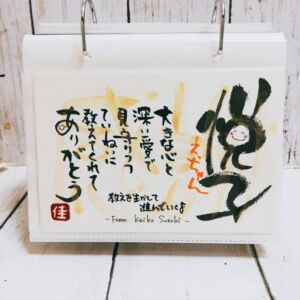 悦子
えっちゃん
大きな心と
深い愛で
見守りつつ
ていねいに
教えてくれて
ありがとう
教えを生かして
進んでいくよ
- From Keiko Suzuki -
佳